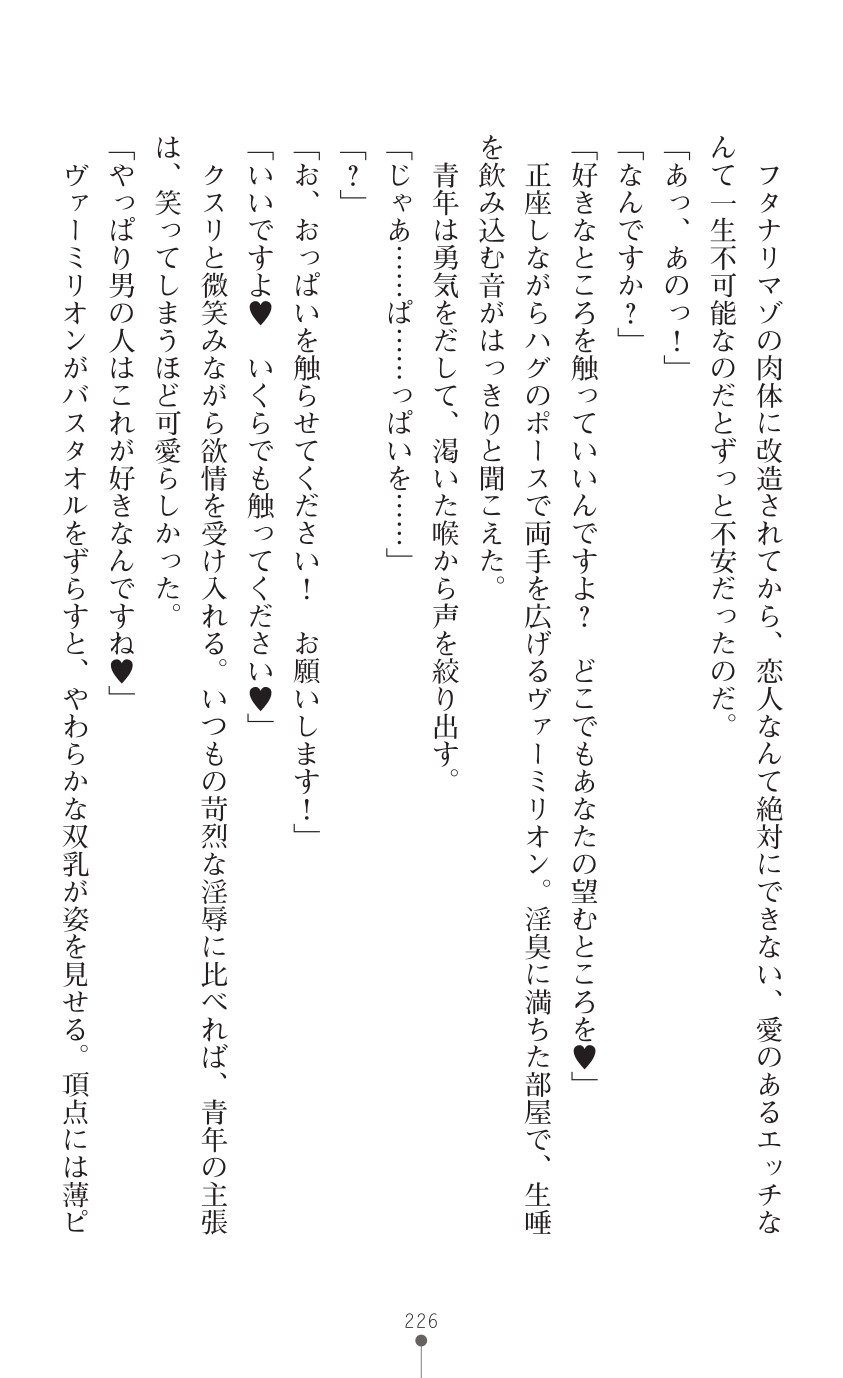 フタナリマゾの肉体に改造されてから、恋人なんて絶対にできない、愛のあるエッチな
んて一生不可能なのだとずっと不安だったのだ。
「あっ、あのっ！」
「なんですか？」
「好きなところを触っていいんですよ？　どこでもあなたの望むところを♥」
正座しながらハグのポースで両手を広げるヴァーミリオン。淫臭に満ちた部屋で、生唾
を飲み込む音がはっきりと聞こえた。
青年は勇気をだして、渇いた喉から声を絞り出す。
「じゃあ……ぱ……っぱいを……」
「？」
「お、おっぱいを触らせてください！　お願いします！」
「いいですよ♥　いくらでも触ってください♥」
クスリと微笑みながら欲情を受け入れる。いつもの苛烈な淫辱に比べれば、青年の主張
は、笑ってしまうほど可愛らしかった。
「やっぱり男の人はこれが好きなんですね♥」
ヴァーミリオンがバスタオルをずらすと、やわらかな双乳が姿を見せる。頂点には薄ピ
226